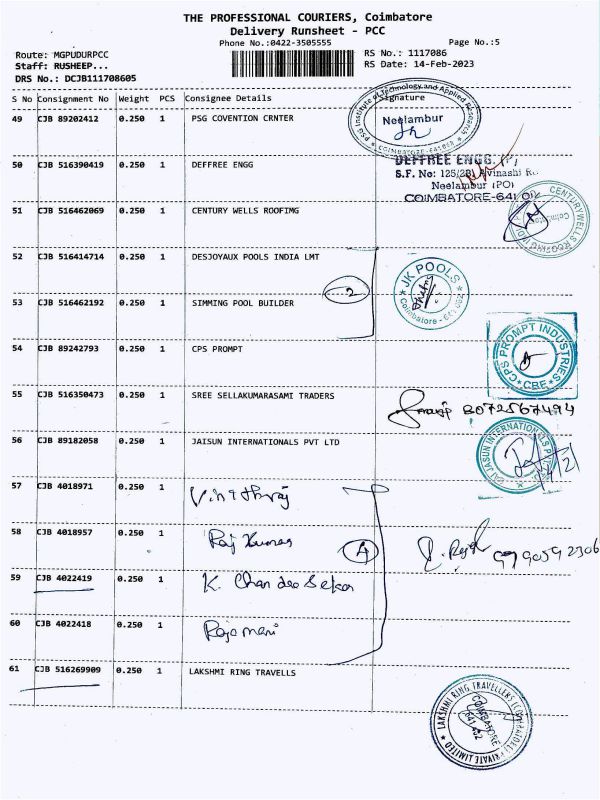 THE PROFESSIONAL COURIERS, Coimbatore
Delivery Runsheet - PCC
Phone No.:0422-3505555
Page No.:5
Route: MGPUDURPCC
Staff: RUSHEEP...
DRS No.: DCJB111708605
RS No.: 1117086
RS Date: 14-Feb-2023
S No Consignment No Weight PCS Consignee Details Signature
49 CJB 89202412 0.250 1 PSG COVENTION CRNTER
PSG Institute of Technology and Applied Research
Neelambur
50 CJB 516390419 0.250 1 DEFFREE ENGG
DEFFREE ENGG. (P)
S.F. No: 125/2B) Avinashi
Neelambur (PO)
COIMBATORE-641
51 CJB 516462069 0.250 1 CENTURY WELLS ROOFIMG
CENTURYWELLS ROOFING
Coimbatore
52 CJB 516414714 0.250 1 DESJOYAUX POOLS INDIA LMT
JK POOLS
Coimbatore
2
53 CJB 516462192 0.250 1 SIMMING POOL BUILDER
54 CJB 89242793 0.250 1 CPS PROMPT
CPS PROMPT INDUSTRIES
CBE
55 CJB 516350473 0.250 1 SREE SELLAKUMARASAMI TRADERS
8072567494
56 CJB 89182058 0.250 1 JAISUN INTERNATIONALS PVT LTD
INTERNATIONALS
57 CJB 4018971 0.250 1
58 CJB 4018957 0.250 1 Raj Kumar
4
59 CJB 4022419 0.250 1 K. Chandra Sekar
60 CJB 4022418 0.250 1 Rajamani
61 CJB 516269909 0.250 1 LAKSHMI RING TRAVELLS
LAKSHMI RING TRAVELLERS (COIMBATORE) PRIVATE LIMITED
COIMBATORE
641 402